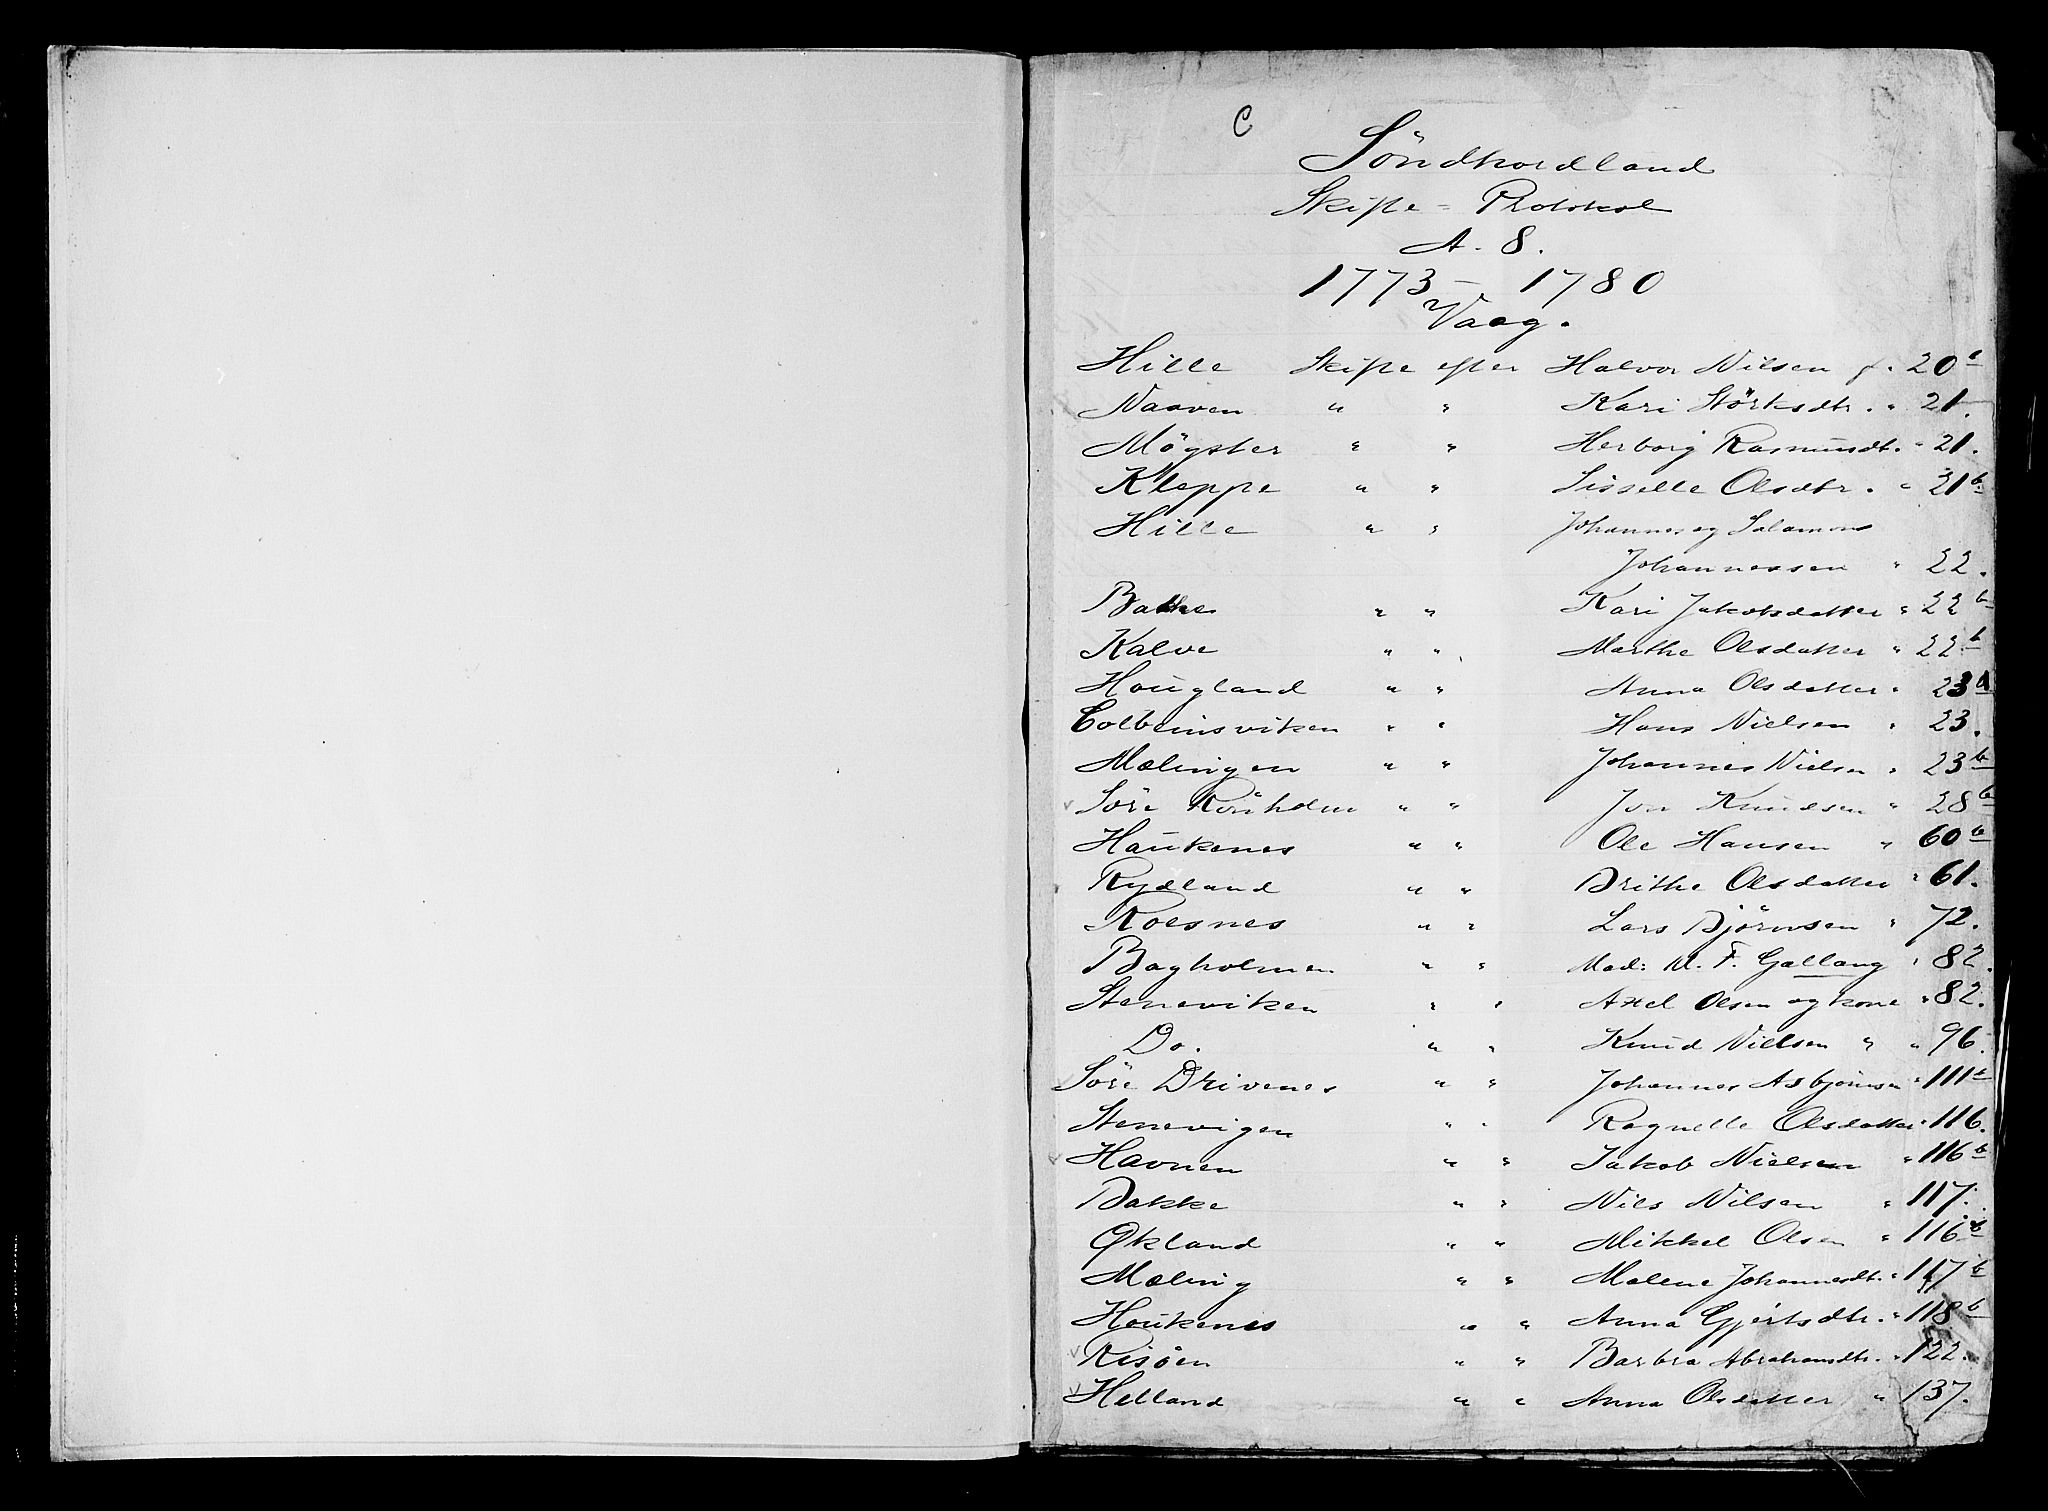 C
Söndhordland
Skifte = Protokol
A. 8.
1773 – 1780
Vaag.
Hille Skifte efter Halvor Nilsen f. 20 a
Naaven " " Kari Störksdtr. " 21.
Mögster " " Herborg Rasmusdt. " 21.
Kleppe " " Sisselle Olsdtr. " 21 b
Hille " " Johannes og Salamons
Johannessen " 22.
Bakke " " Kari Jakobsdatter " 22 b
Kalve " " Marthe Olsdatter " 22 b
Hougland " " Anna Olsdatter " 23 a
Colbeinsviken " " Hans Nielsen " 23.
Mælingen " " Johannes Nielsen " 23 b
Söre Röüholm " " Jon Knudsen " 28 b
Haukenes " " Ole Hansen " 60 b
Rydland " " Brithe Olsdatter " 61.
Roesnes " " Lars Björnsen " 72.
Bagholmen " " Mad: M. F. Gallang " 82.
Steneviken " " Axel Olsen og kone " 82.
Do. " " Knud Nielsen " " 96.
Söre Drivenes " " Johannes Asbjörnsen " 111 a
Stenevigen " " Ragnelle Olsdatter " 116.
Havnen " " Jakob Nielsen " 116 b
Bakke " " Nils Nilsen " 117.
Økland " " Mikkel Olsen " 116 b
Mæling " " Malene Johannesdt. " 117 b
Houkenes " " Anna Gjertsdtr. " 118 b
Risöen " " Barbra Abrahamdtr. " 122.
Helland " " Anna Olsdatter " 137.